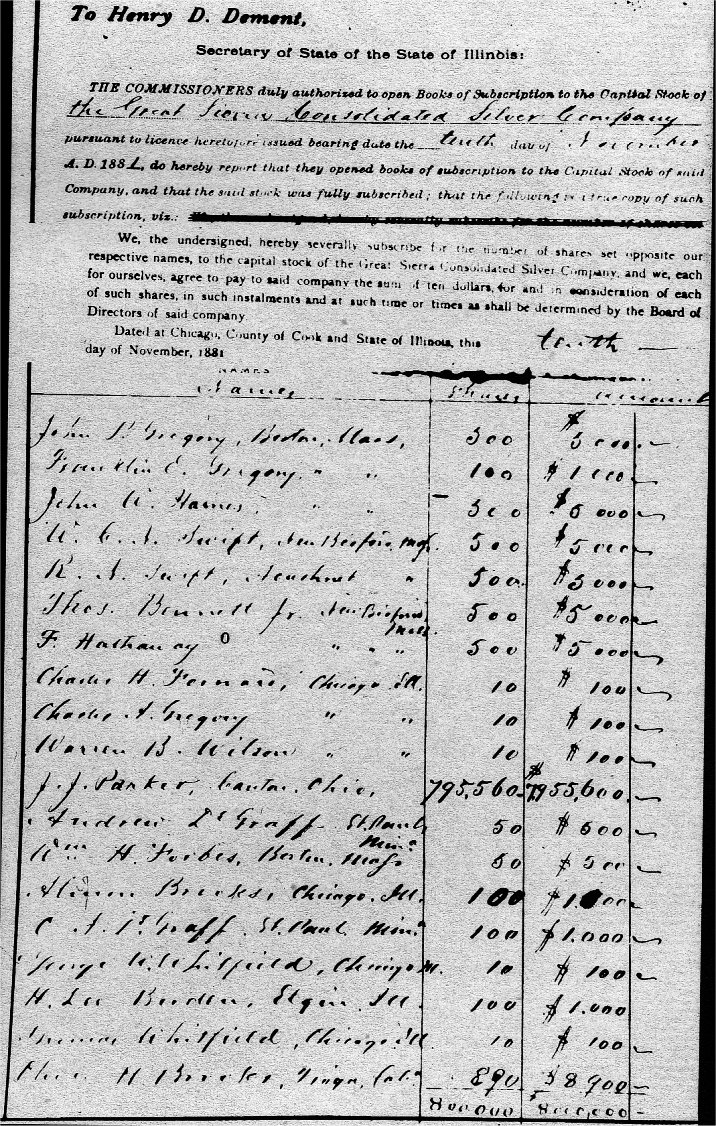 To Henry D. Dement,
Secretary of State of the State of Illinois:
THE COMMISSIONERS duly authorized to open Books of Subscription to the Capital Stock of
the Great Sierra Consolidated Silver Company
pursuant to licence heretofore issued bearing date the tenth day of November
A. D. 1881, do hereby report that they opened books of subscription to the Capital Stock of said
Company, and that the said stock was fully subscribed; that the following is a true copy of such
subscription, viz.:
We, the undersigned, hereby severally subscribe for the number of shares set opposite our
respective names, to the capital stock of the Great Sierra Consolidated Silver Company, and we, each
for ourselves, agree to pay to said company the sum of ten dollars, for and in consideration of each
of such shares, in such instalments and at such time or times as shall be determined by the Board of
Directors of said company
Dated at Chicago, County of Cook and State of Illinois, this tenth
day of November, 1881
NAMES
Names Shares Amount
John Gregory, Boston, Mass, 500 $5000
Franklin E. Gregory " " 100 $1000
John W. Hames " " 500 $5000
W. C. N. Swift, New Bedford, Mass. 500 $5000
R. N. Swift, Acushnet " 500 $5000
Thos. Bennett Jr. New Bedford, Mass. 500 $5000
F. Hathaway " " " 500 $5000
Charles H. Chicago Ill. 10 $100
Charles A. Gregory " " 10 $100
Warren B. Wilson " " 10 $100
J. J. Parker, Canton, Ohio, 795,560 $7955,600
Andrew De Graff St. Paul, Minn. 50 $500
Wm H. Forbes, Boston, Mass 50 $500
Brooks, Chicago, Ill. 100 $1.000
C. A. De Graff, St. Paul Minn. 100 $1.000
George W. Whitfield, Chicago Ill. 10 $100
H. Lee Borden, Elgin Ill. 100 $1.000
Whitfield, Chicago Ill 10 $100
H. Brooks, Tioga, Cal. 890 $8900
800000 $8000,000